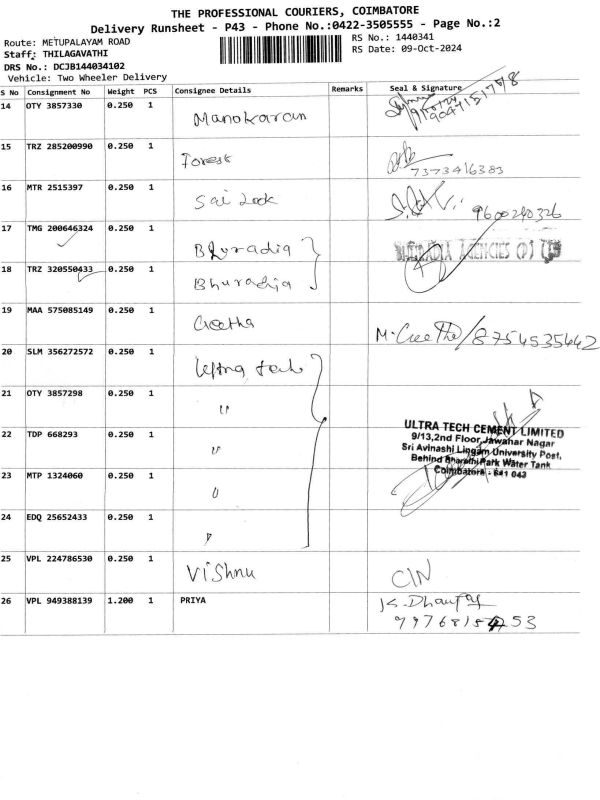 THE PROFESSIONAL COURIERS, COIMBATORE
Delivery Runsheet - P43 - Phone No.:0422-3505555 - Page No.:2
Route: METUPALAYAM ROAD
RS No.: 1440341
Staff: THILAGAVATHI
RS Date: 09-Oct-2024
DRS No.: DCJB144034102
Vehicle: Two Wheeler Delivery
S No Consignment No Weight PCS Consignee Details Remarks Seal & Signature
14 OTY 3857330 0.250 1 Manokaran
15 TRZ 285200990 0.250 1 Forest 7373416383
16 MTR 2515397 0.250 1 Sai 9600240326
17 TMG 200646324 0.250 1 Bhuradia BHURADIA AGENCIES (P) LTD
18 TRZ 320550433 0.250 1 Bhuradia
19 MAA 575085149 0.250 1 Geetha M. Geetha/8754535442
20 SLM 356272572 0.250 1
21 OTY 3857298 0.250 1 "
22 TDP 668293 0.250 1 "
ULTRA TECH CEMENT LIMITED
9/13,2nd Floor,Jawahar Nagar
Sri Avinashi Lingam University Post,
Behind Bharathi Park Water Tank
Coimbatore - 641 043
23 MTP 1324060 0.250 1 "
24 EDQ 25652433 0.250 1 "
25 VPL 224786530 0.250 1 Vishnu
26 VPL 949388139 1.200 1 PRIYA K.